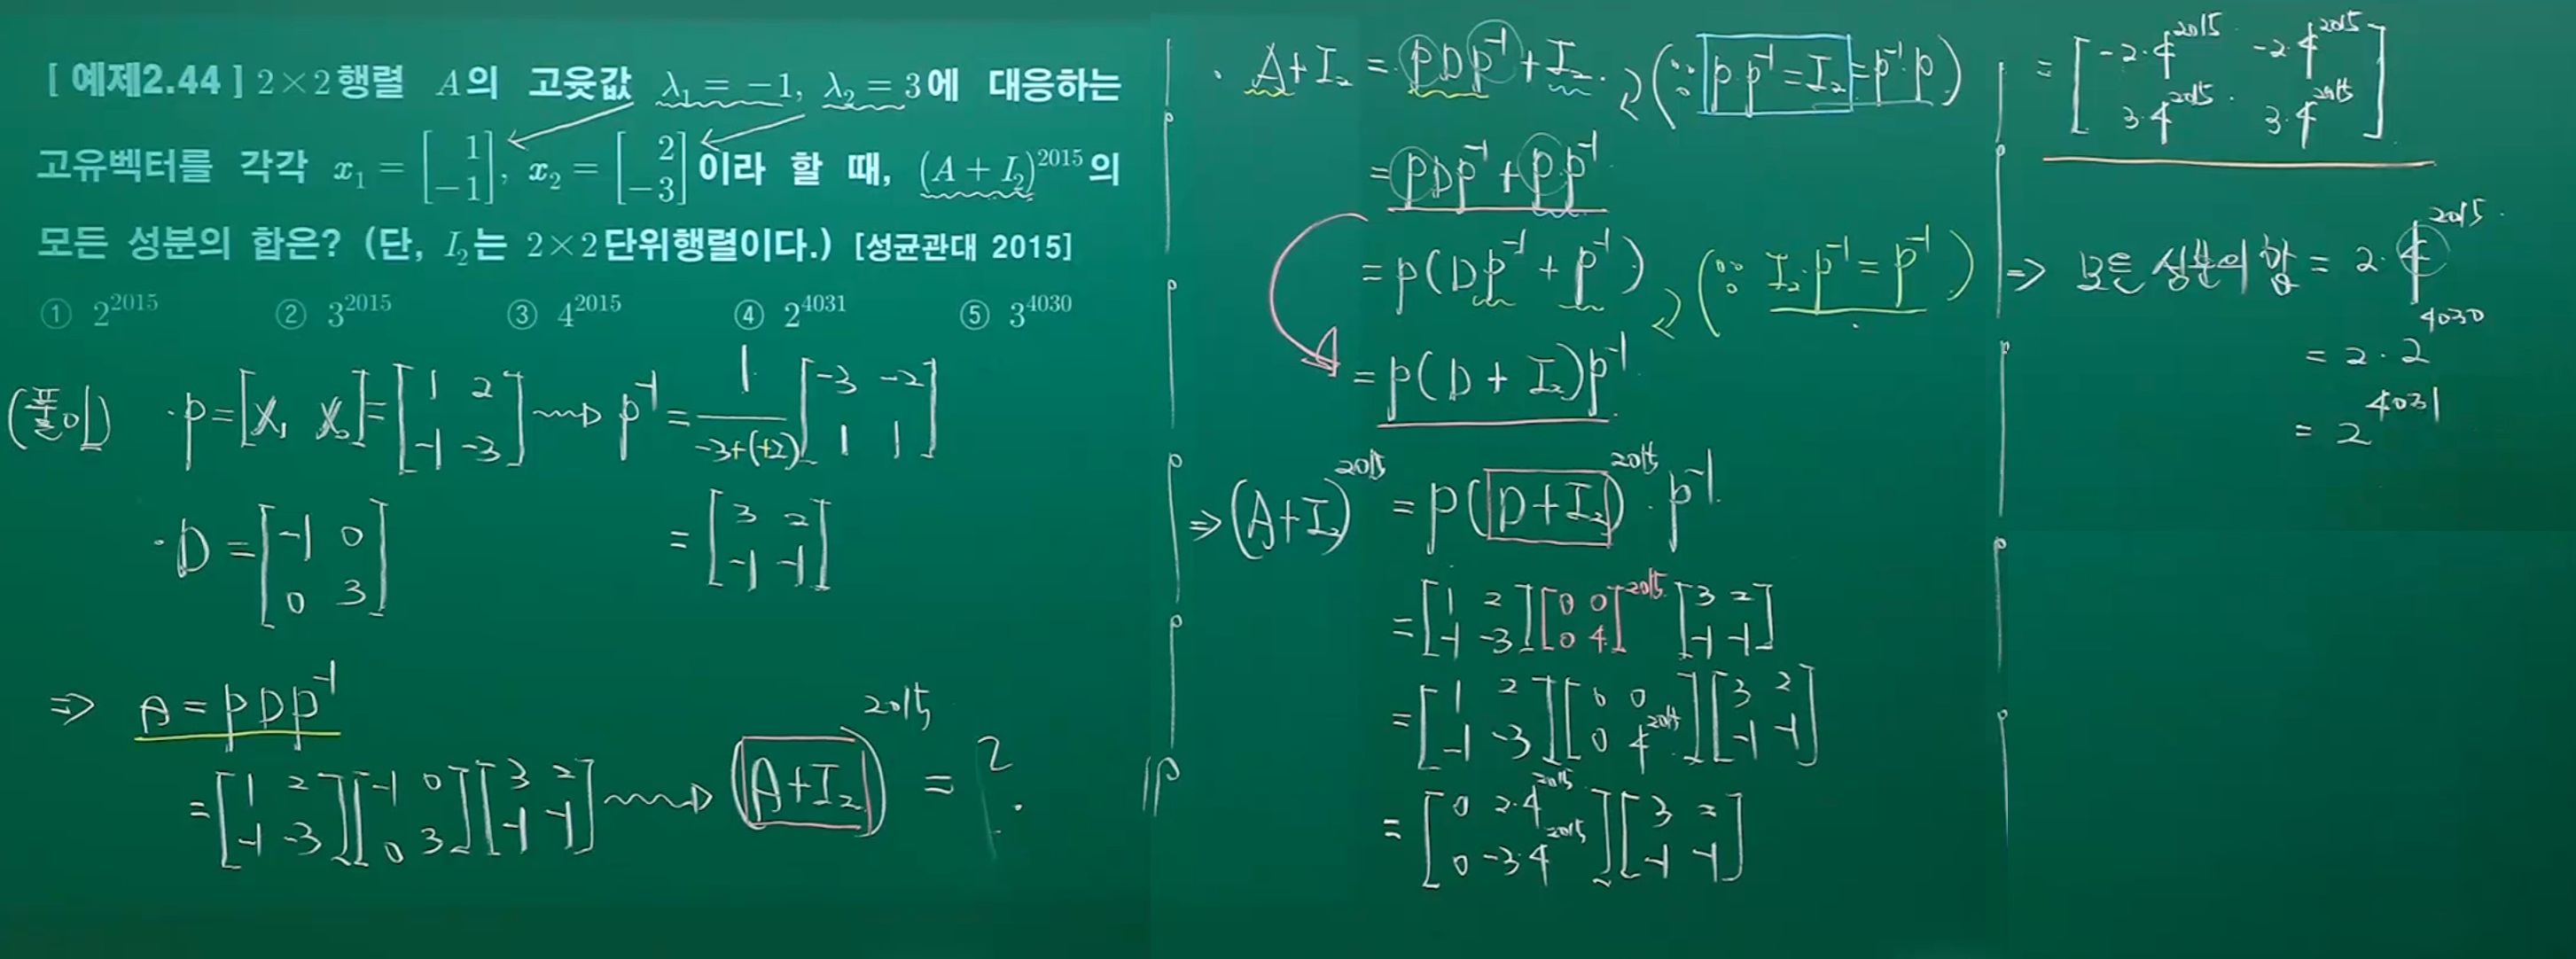 [ 예제2.44 ] 2×2행렬 A의 고윳값 λ₁ = −1, λ₂ = 3에 대응하는
고유벡터를 각각 x₁ = [1; −1], x₂ = [2; −3]이라 할 때, (A + I₂)^2015의
모든 성분의 합은? (단, I₂는 2×2단위행렬이다.) [성균관대 2015]
① 2^2015 ② 3^2015 ③ 4^2015 ④ 2^4031 ⑤ 3^4030
(풀이) · P = [x₁ x₂] = [1 2; -1 -3] ⇝ P^-1 = 1/(-3+(+2)) [-3 -2; 1 1]
= [3 2; -1 -1]
· D = [-1 0; 0 3]
⇒ A = PDP^-1
= [1 2; -1 -3][-1 0; 0 3][3 2; -1 -1] ⇝ (A+I₂)^2015 = ?
· A+I₂ = PDP^-1 + I₂. (∵ P·P^-1 = I₂ = P^-1·P)
= PDP^-1 + P·P^-1
= P(DP^-1 + P^-1) (∵ I₂·P^-1 = P^-1)
= P(D + I₂)P^-1
⇒ (A+I₂)^2015 = P(D+I₂)^2015 · P^-1
= [1 2; -1 -3][0 0; 0 4]^2015 [3 2; -1 -1]
= [1 2; -1 -3][0 0; 0 4^2015][3 2; -1 -1]
= [0 2·4^2015; 0 -3·4^2015][3 2; -1 -1]
= [-2·4^2015 -2·4^2015; 3·4^2015 3·4^2015]
⇒ 모든 성분의 합 = 2·4^2015
= 2·2^4030
= 2^4031